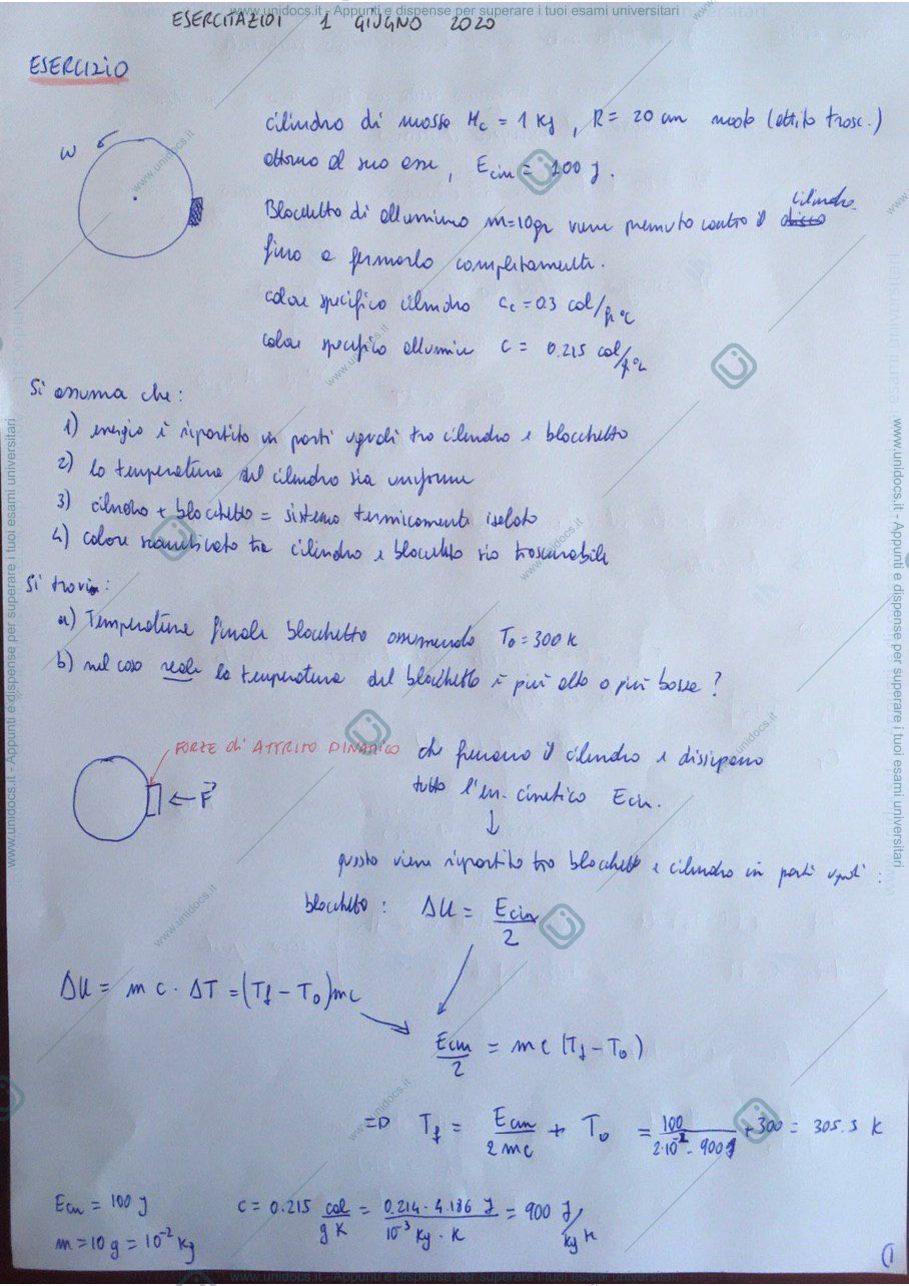 ESERCITAZIONI 1 GIUGNO 2020
ESERCIZIO
cilindro di massa Mc = 1 kg, R = 20 cm ruota (attrito trasc.)
ω
attorno al suo asse, Ecin = 100 J.
Blocchetto di alluminio m=10gr viene premuto contro il disco cilindro
fino a fermarlo completamente.
calore specifico cilindro cc = 0.3 cal/gr °C
calore specifico alluminio c = 0.215 cal/g °C
Si assuma che:
1) energia è ripartita in parti uguali tra cilindro e blocchetto
2) la temperatura del cilindro sia uniforme
3) cilindro + blocchetto = sistema termicamente isolato
4) calore scambiato tra cilindro e blocchetto sia trascurabile
Si trovi:
a) Temperatura finale blocchetto assumendo T0 = 300 K
b) nel caso reale la temperatura del blocchetto è più alta o più bassa?
FORZE di ATTRITO DINAMICO che frenano il cilindro e dissipano
tutta l'en. cinetica Ecin.
← F
↓
questa viene ripartita tra blocchetto e cilindro in parti uguali:
blocchetto: ΔU = Ecin/2
ΔU = m c · ΔT = (Tf - T0)mc
Ecin/2 = mc (Tf - T0)
=> Tf = Ecin/2mc + T0 = 100/2·10^-2·900 + 300 = 305.5 K
Ecin = 100 J c = 0.215 cal/g K = 0.214 · 4.186 J/10^-3 kg · K = 900 J/kg K
m = 10 g = 10^-2 kg
1
www.unidocs.it - Appunti e dispense per superare i tuoi esami universitari